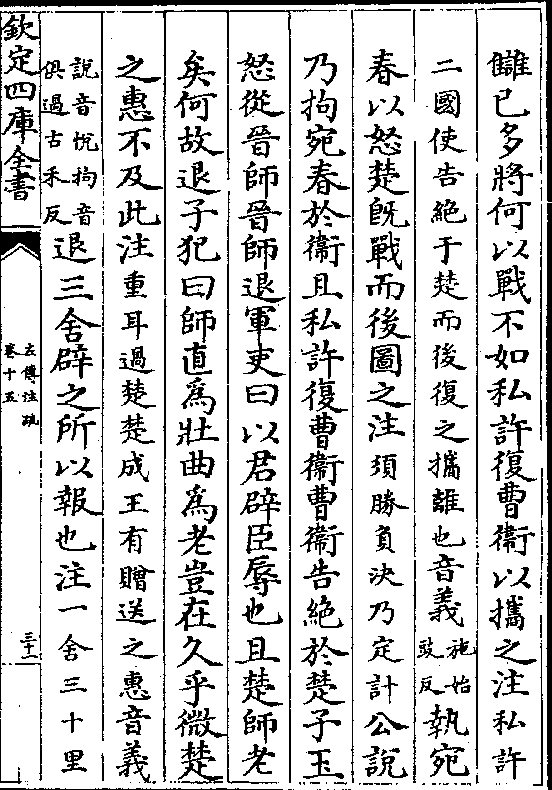 讎已多將何以戰不如私許復曹衞以攜之注私許
二國使告絶于楚而後復之攜離也音義施始豉反執宛
春以怒楚旣戰而後圖之注須勝負決乃定計公說
乃拘宛春於衞且私許復曹衞曹衞告絶於楚子玉
怒從晉師晉師退軍吏曰以君辟臣辱也且楚師老
矣何故退子犯曰師直爲壯曲爲老豈在久乎微楚
之惠不及此注重耳過楚楚成王有贈送之惠音義
說音悅拘音俱過古禾反退三舍辟之所以報也注一舍三十里
欽定四庫全書
左傳注疏
卷十五
三十一